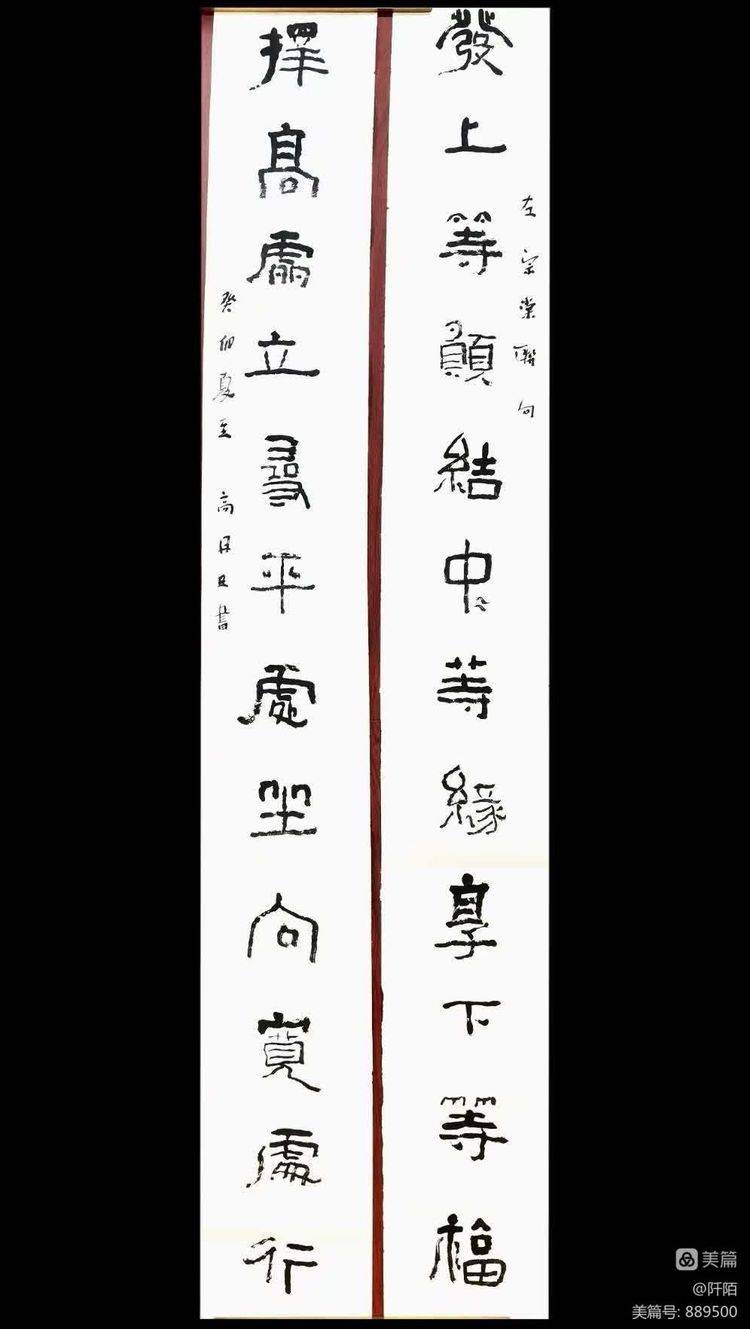 發上等願結中等緣享下等福
左宗棠聯句
擇高處立尋平處坐向寬處行
癸卯夏至 高 書
美篇
@阡陌
美篇号: 889500